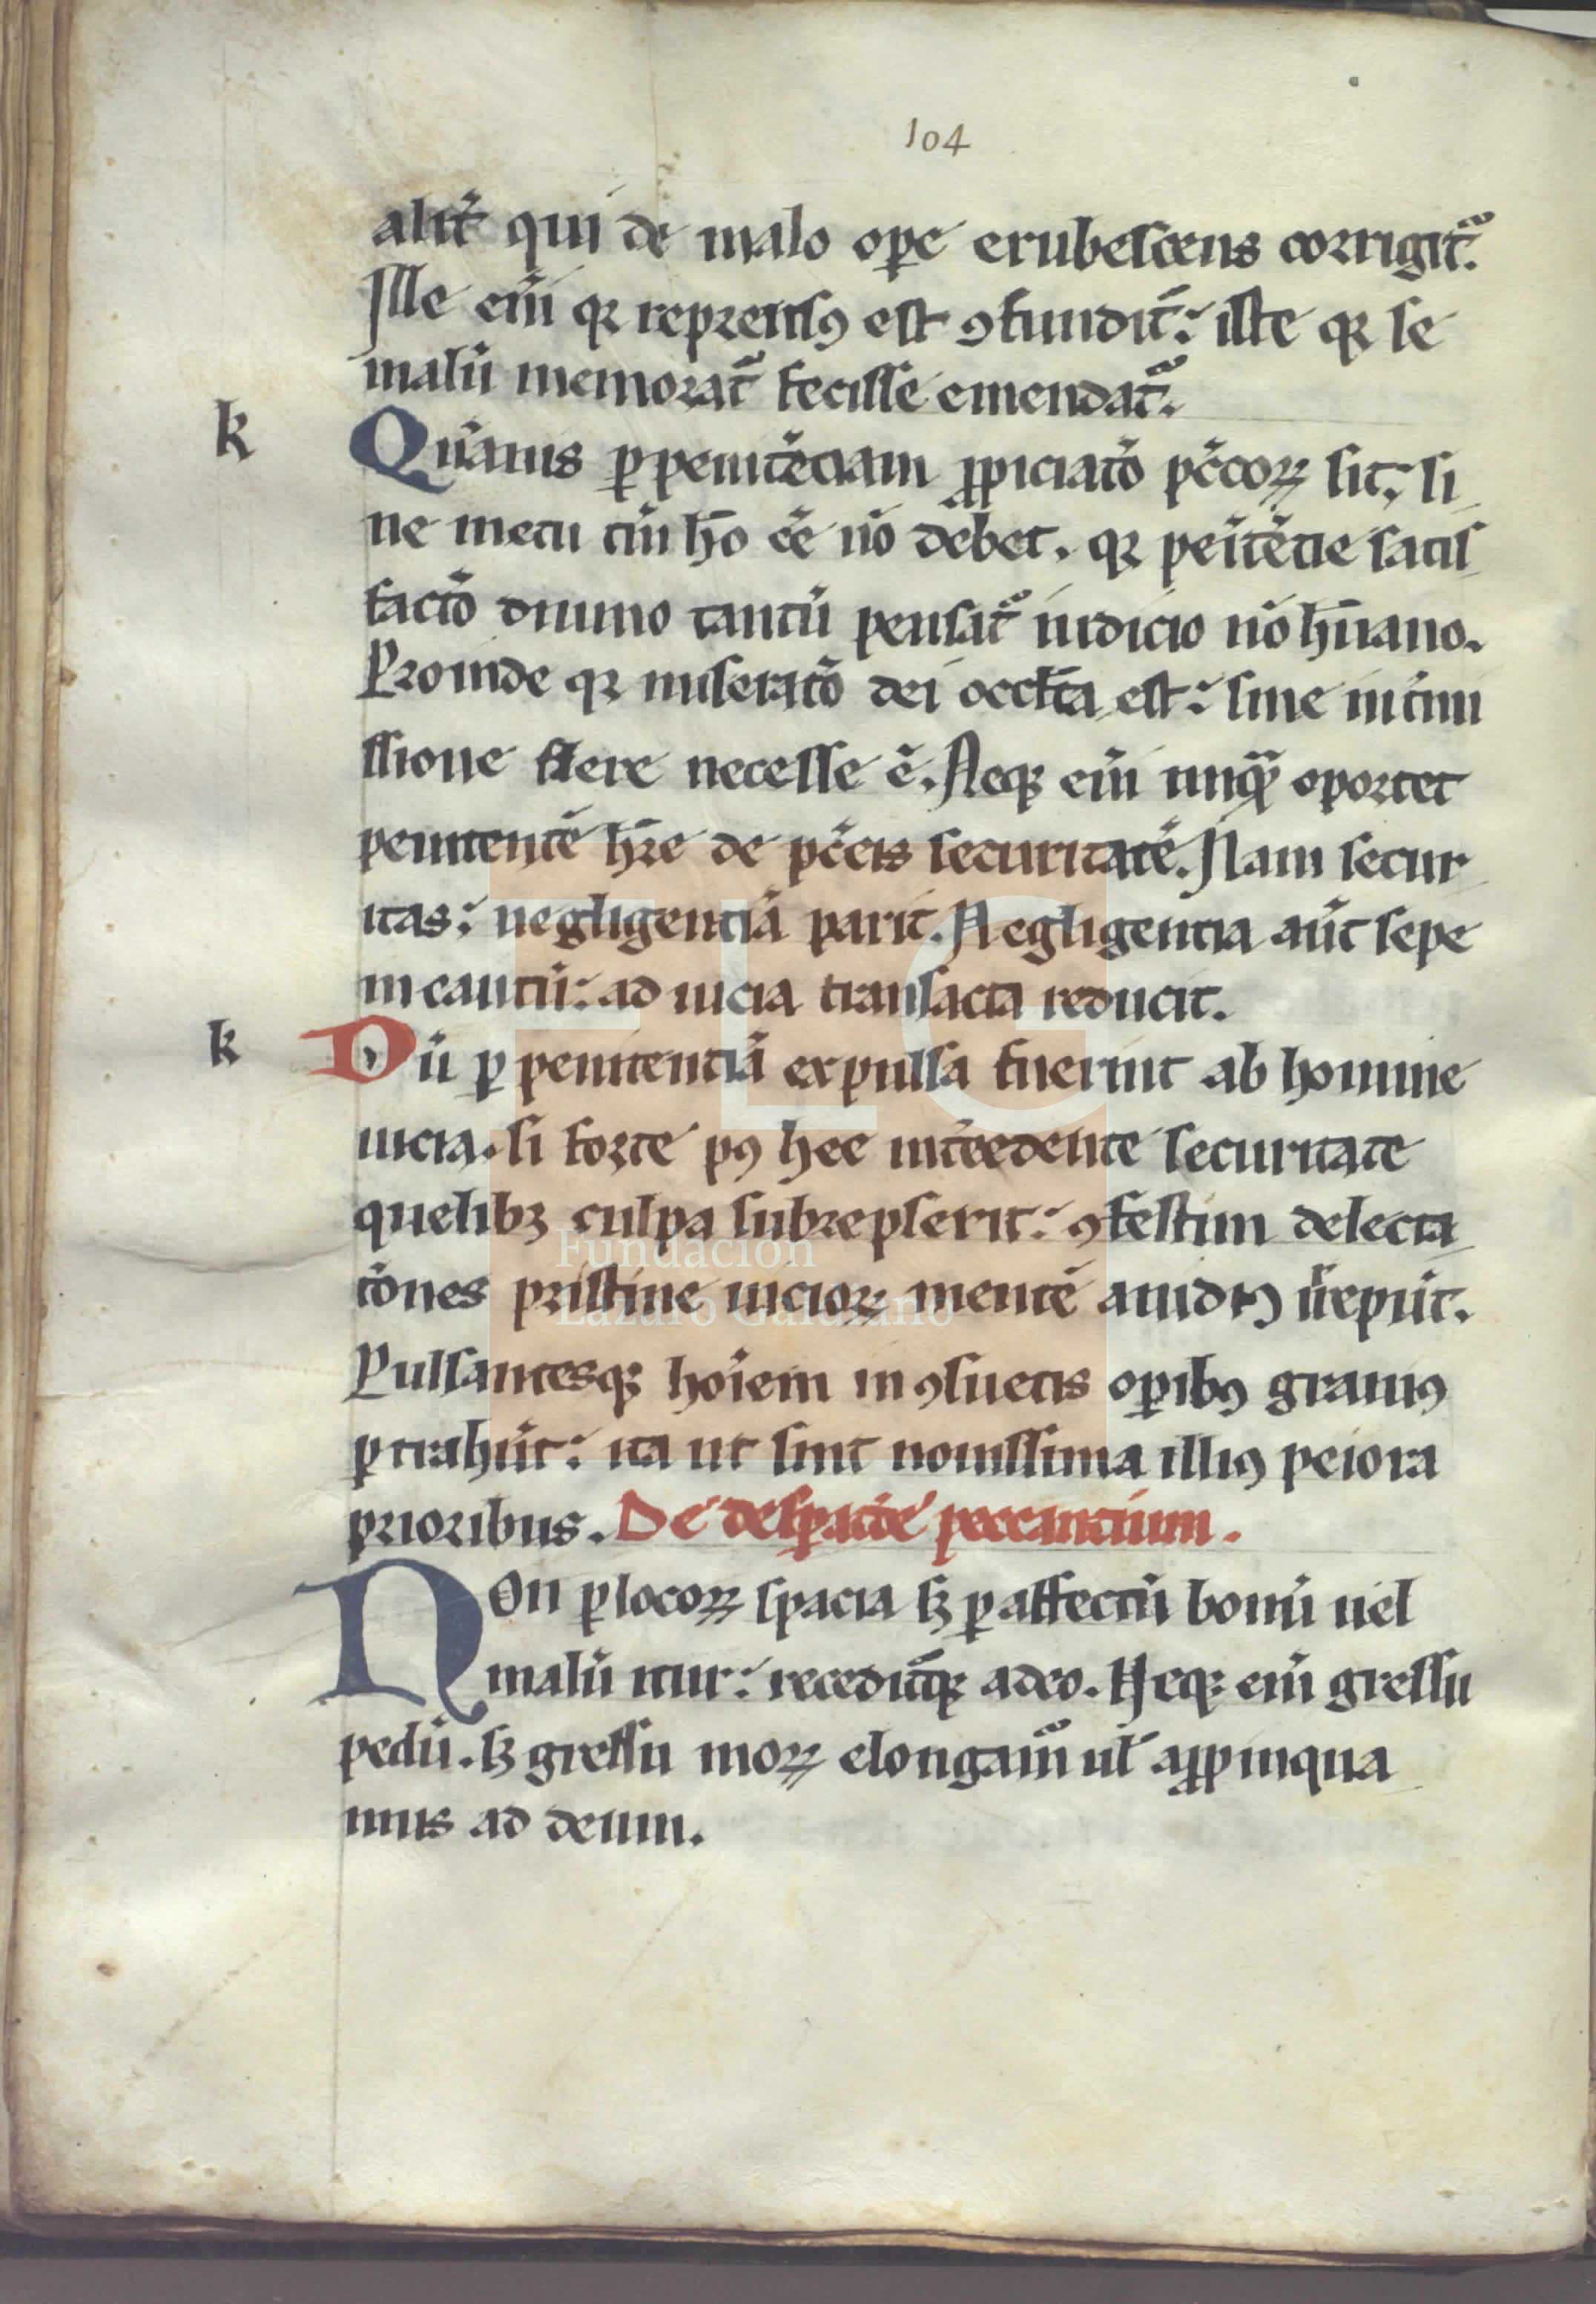 104
alit᷑ qui de malo oꝑe erubescens corrigit᷑.
Ille eı̄ qꝛ reprensꝯ est ꝯfundit᷑: iste qꝛ se
malū memorat᷑ fecisse emendat᷑.
k
Quāuis ꝑ penitēciam ꝓpiciatō pc̄coꝝ sit: si
ne metu tn̄ hō eē nō debet. qꝛ penitētie satis
factō diuino tantū pensat᷑ iudicio nō hūano.
Proinde qꝛ miseratō dei occl̄ta est: sine int̄mi
ssione flere necesse ē. Neqꝫ eı̄ unqᷓ oportet
penitentē hr̄e de pc̄cis securitatē. Nam secur
itas: negligenciā parit. Negligentia aūt sepe
incautū: ad uicia transacta reducit.
k
Dū ꝑ penitentiā expulsa fuerint ab homine
uicia. si forte pꝯ hec int̄cedente securitate
quelibꝫ culpa subrepserit: ꝯfestim delecta
tōnes pristine uicioꝝ mentē auidiꝯ irrepūt.
Pulsantesqꝫ hoı̄em in ꝯsuetis oꝑibꝯ grauiꝯ
ꝑtrahūt: ita ut sint nouissima illiꝯ peiora
prioribus. De desꝑatōe peccancium.
Non ꝑ locoꝝ spacia sꝫ ꝑ affectū bonū uel
malū itur: recedit᷑qꝫ a deo. Neqꝫ eı̄ gressu
pedū. sꝫ gressu moꝝ elongam᷑ ul̄ aꝓpinqua
mus ad deum.
FLG
Fundación
Lázaro Galdiano